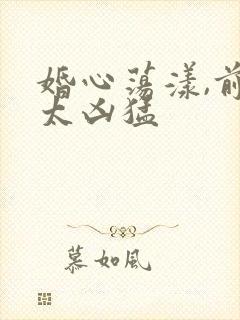 婚心荡漾,前
太凶猛
慕如风